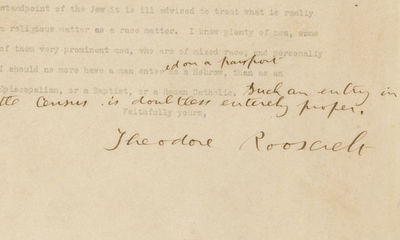 standpoint of the Jew it is ill advised to treat what is really
a religious matter as a race matter. I know plenty of men, some
of them very prominent men, who are of mixed race; and personally
ed on a passport
I should no more have a man enter as a Hebrew, than as an
Episcopalian, or a Baptist, or a Roman Catholic. Such an entry in
the census is doubtless entirely proper.
Faithfully yours,
Theodore Roosevelt